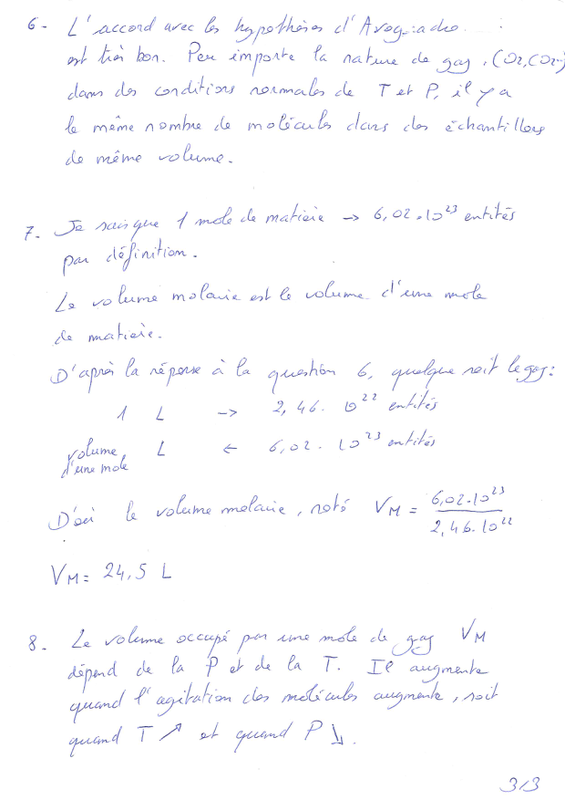 6- L'accord avec les hypothèses d'Avogadro :
est très bon. Peu importe la nature de gaz, (O2, CO2..)
dans des conditions normales de T et P, il y a
le même nombre de molécules dans des échantillons
de même volume.
7- Je sais que 1 mole de matière → 6,02.10²³ entités
par définition.
Le volume molaire est le volume d'une mole
de matière.
D'après la réponse à la question 6, quelque soit le gaz :
1 L → 2,46. 10²² entités
volume d'une mole L ← 6,02. 10²³ entités
D'où le volume molaire, noté VM = 6,02.10²³ / 2,46.10²²
VM = 24,5 L
8- Le volume occupé par une mole de gaz VM
dépend de la P et de la T. Il augmente
quand l'agitation des molécules augmente, soit
quand T ↗ et quand P ↘.
3/3